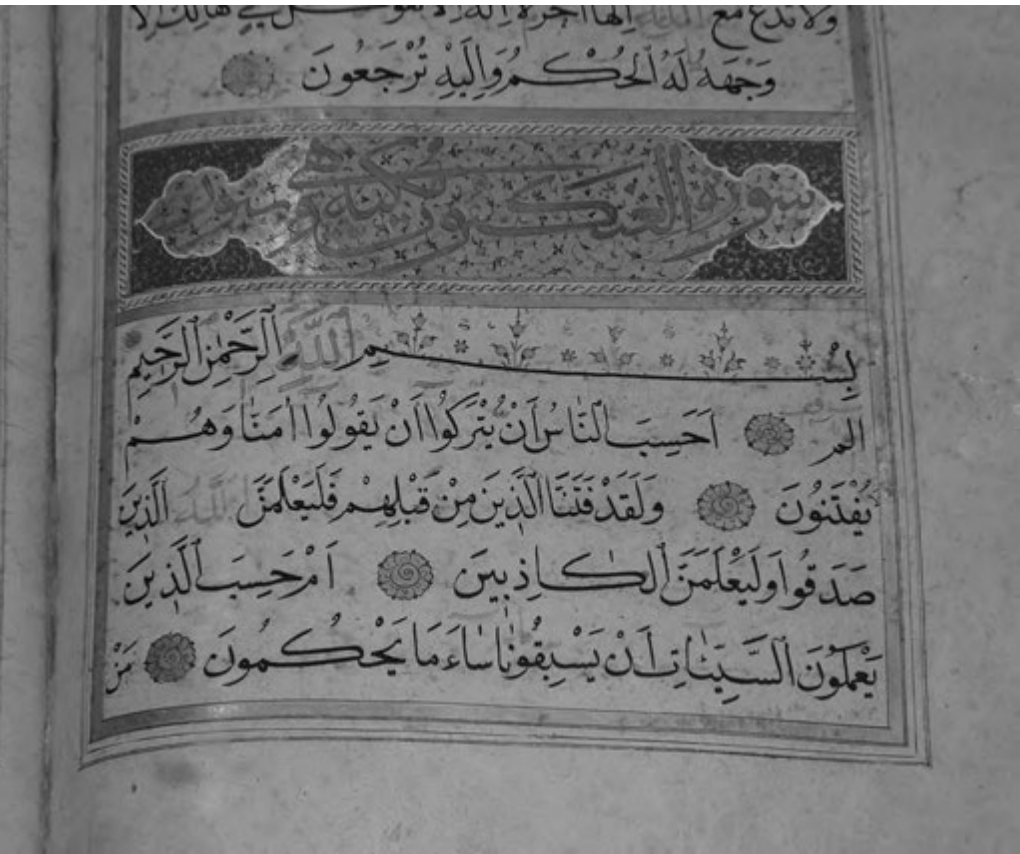 ولا تدع مع الله إلها آخر لا إله إلا هو كل شيء هالك إلا
وَجْهَهُ لَهُ الْحُكْمُ وَإِلَيْهِ تُرْجَعُونَ
سورة العنكبوت مكية وهي
بِسْمِ اللَّهِ الرَّحْمٰنِ الرَّحِيمِ
الم اَحَسِبَ النَّاسُ اَنْ يُتْرَكُوا اَنْ يَقُولُوا اٰمَنَّا وَهُمْ
يُفْتَنُونَ وَلَقَدْ فَتَنَّا الَّذِينَ مِنْ قَبْلِهِمْ فَلَيَعْلَمَنَّ اللَّهُ الَّذِينَ
صَدَقُوا وَلَيَعْلَمَنَّ الْكَاذِبِينَ اَمْ حَسِبَ الَّذِينَ
يَعْمَلُونَ السَّيِّئَاتِ اَنْ يَسْبِقُونَا سَاءَ مَا يَحْكُمُونَ مَنْ